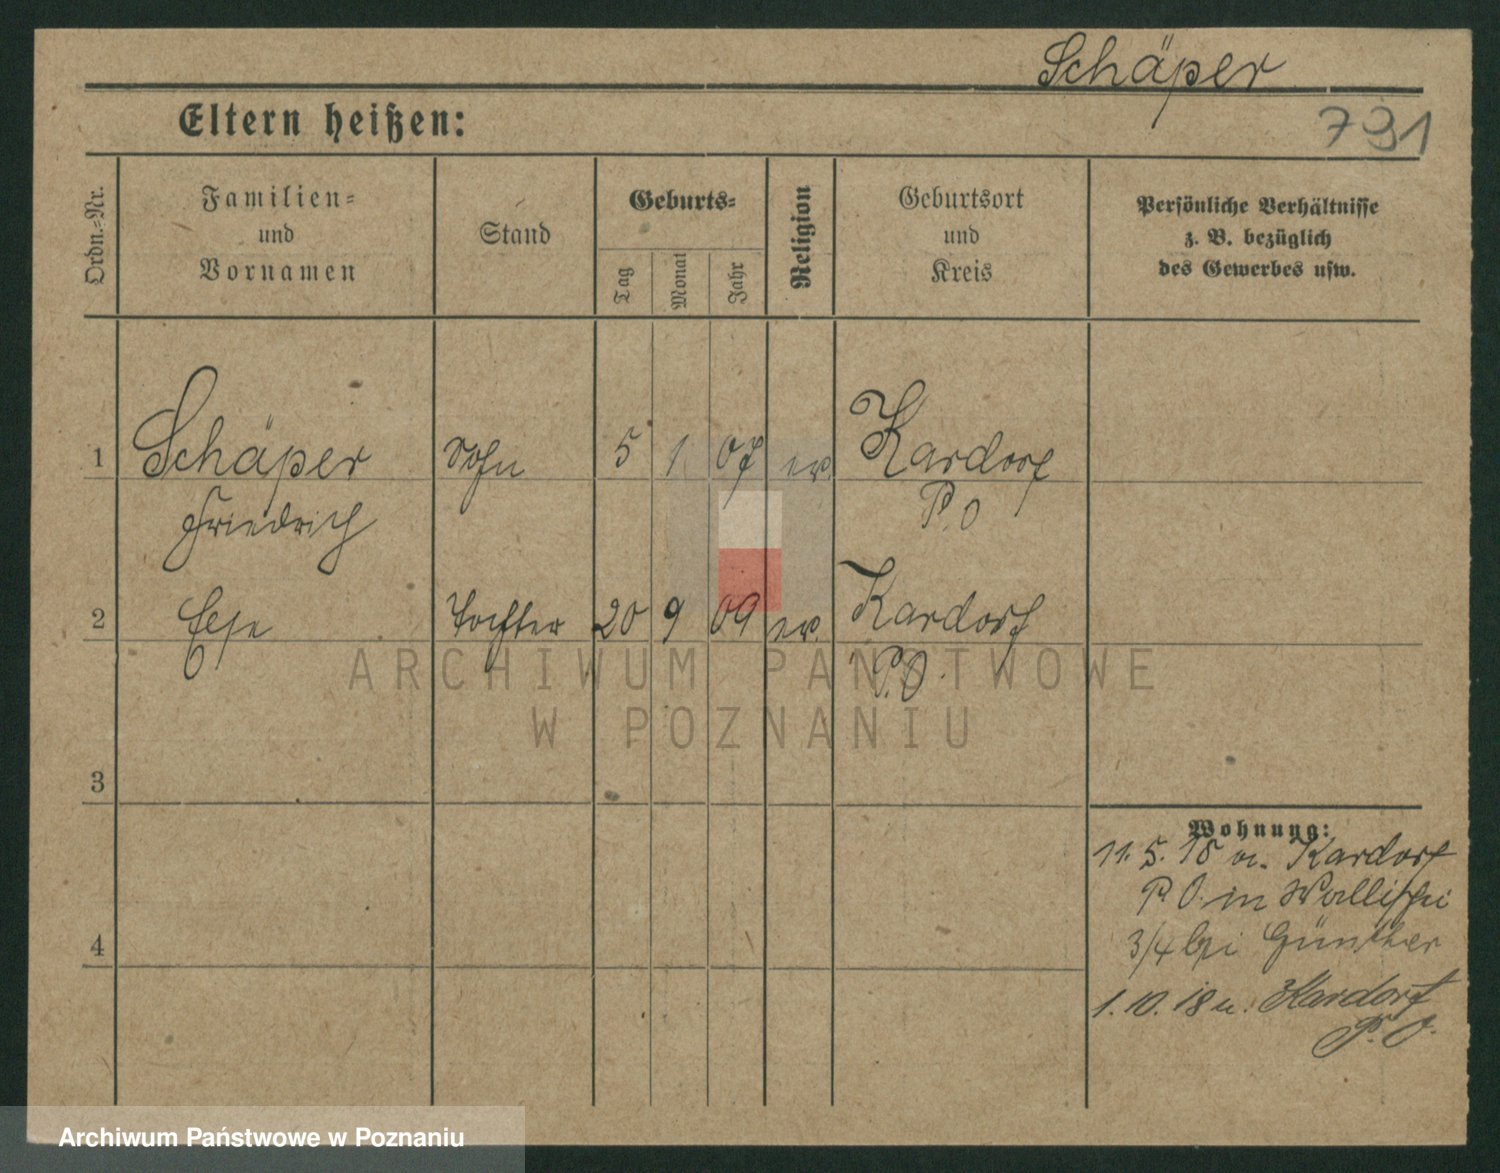 Schäper
Eltern heißen:
791
Ordn.-Nr.
Familien-
und
Vornamen
Stand
Geburts-
Tag
Monat
Jahr
Religion
Geburtsort
und
Kreis
Persönliche Verhältnisse
z. B. bezüglich
des Gewerbes usw.
1 Schäper Sohn 5 1 07 ev. Kardorf
Friedrich P. O
2 Else Tochter 20 9 09 ev. Kardorf
P. O.
ARCHIWUM PAŃSTWOWE
W POZNANIU
3
4
Wohnung:
11. 5. 18 n. Kardorf
P. O. in Wallischei
3/4 bei Günther
1. 10. 18 n. Kardorf
P. O.
Archiwum Państwowe w Poznaniu